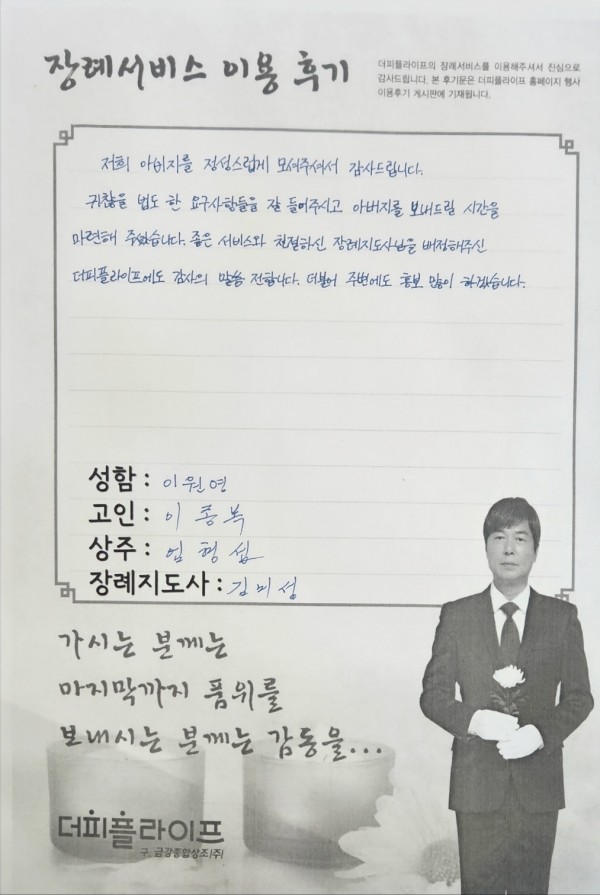 장례서비스 이용 후기
더피플라이프의 장례서비스를 이용해주셔서 진심으로
감사드립니다. 본 후기문은 더피플라이프 홈페이지 행사
이용후기 게시판에 기재됩니다.
저희 아버지를 정성스럽게 모셔주셔서 감사드립니다.
귀찮을 법도 한 요구사항들을 잘 들어주시고 아버지를 보내드릴 시간을
마련해 주셨습니다. 좋은 서비스와 친절하신 장례지도사님을 배정해주신
더피플라이프에도 감사의 말씀 전합니다. 더불어 주변에도 홍보 많이 하겠습니다.
성함 : 이원영
고인 : 이종복
상주 : 엄형섭
장례지도사 : 김미성
가시는 분께는
마지막까지 품위를
보내시는 분께는 감동을...
더피플라이프
구. 금강종합상조(주)